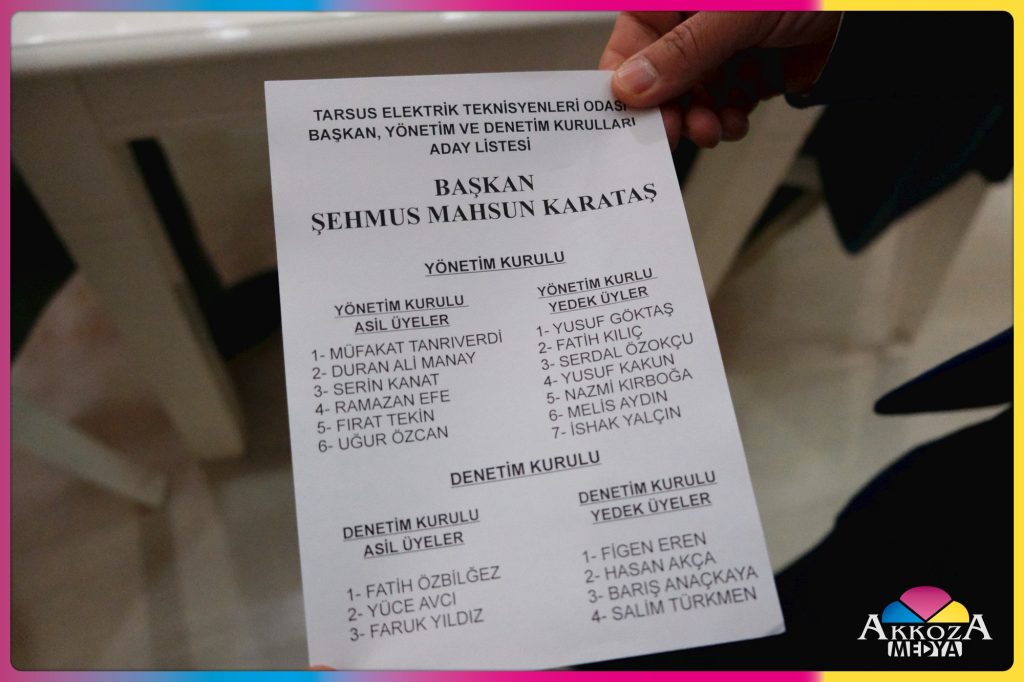 TARSUS ELEKTRİK TEKNİSYENLERİ ODASI
BAŞKAN, YÖNETİM VE DENETİM KURULLARI
ADAY LİSTESİ
BAŞKAN
ŞEHMUS MAHSUN KARATAŞ
YÖNETİM KURULU
YÖNETİM KURULU
ASİL ÜYELER
1- MÜFAKAT TANRIVERDİ
2- DURAN ALİ MANAY
3- SERİN KANAT
4- RAMAZAN EFE
5- FIRAT TEKİN
6- UĞUR ÖZCAN
YÖNETİM KURLU
YEDEK ÜYLER
1- YUSUF GÖKTAŞ
2- FATİH KILIÇ
3- SERDAL ÖZOKÇU
4- YUSUF KAKUN
5- NAZMİ KIRBOĞA
6- MELİS AYDIN
7- İSHAK YALÇIN
DENETİM KURULU
DENETİM KURULU
ASİL ÜYELER
1- FATİH ÖZBİLĞEZ
2- YÜCE AVCI
3- FARUK YILDIZ
DENETİM KURULU
YEDEK ÜYELER
1- FİGEN EREN
2- HASAN AKÇA
3- BARIŞ ANAÇKAYA
4- SALİM TÜRKMEN
AKKOZA
MEDYA